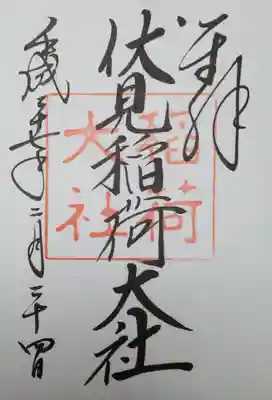 奉拝
伏見稲荷大社
平成三十一年二月二十四日
稲荷
大社